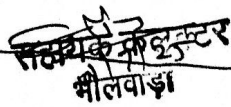 सहायक कलेक्टर
भीलवाड़ा